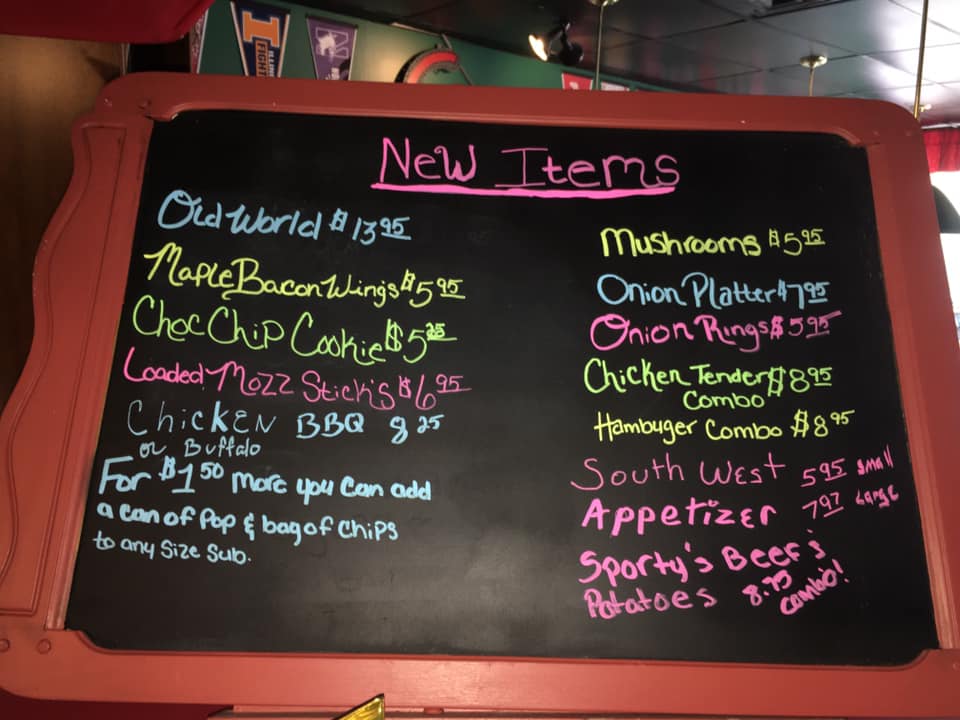 ILLINI
FIGHT
New Items
Old World $13.95
Maple Bacon Wings $5.95
Choc Chip Cookie $5.25
Loaded Mozz Stick's $6.95
Chicken BBQ 8.25
or Buffalo
For $1.50 more you can add
a can of Pop & bag of chips
to any Size Sub.
Mushrooms $5.95
Onion Platter $7.95
Onion Rings $5.95
Chicken Tender $8.95
Combo
Hambuger Combo $8.95
South West 5.95 Small
Appetizer 7.97 Large
Sporty's Beef &
Potatoes 8.75
combo!